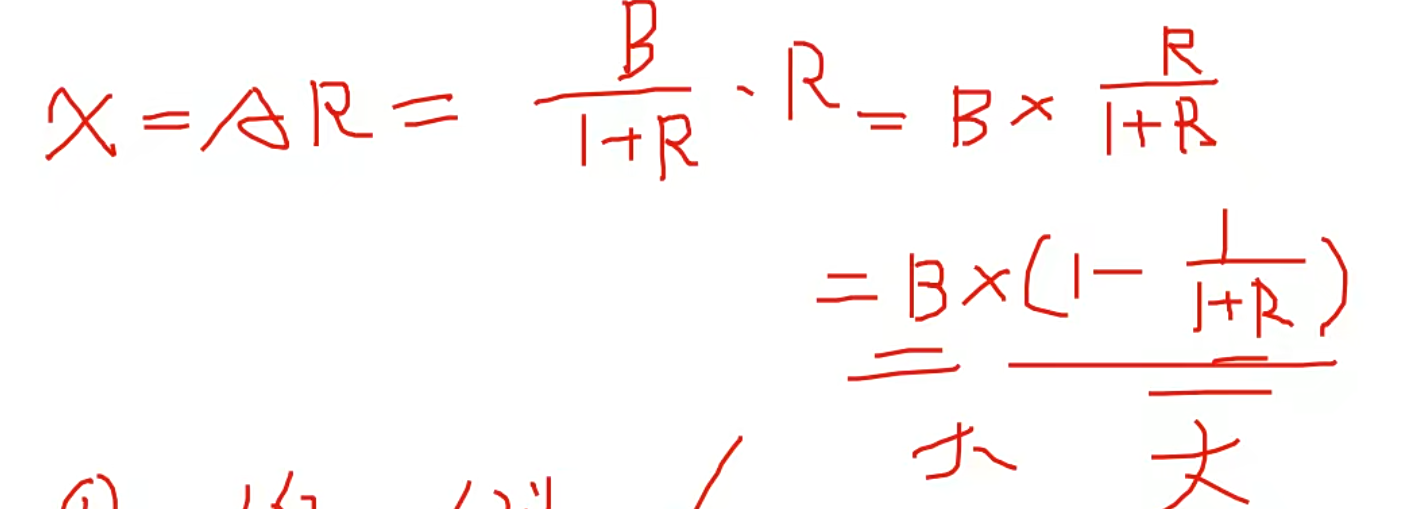 X = AR = B/(1+R) · R = B × R/(1+R)
= B × (1 − 1/(1+R))
大 大